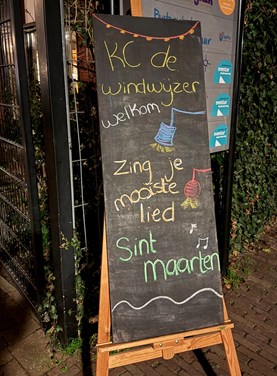 KC de
windwyzer
welkom
Zing je
mooiste
lied
Sint
maarten